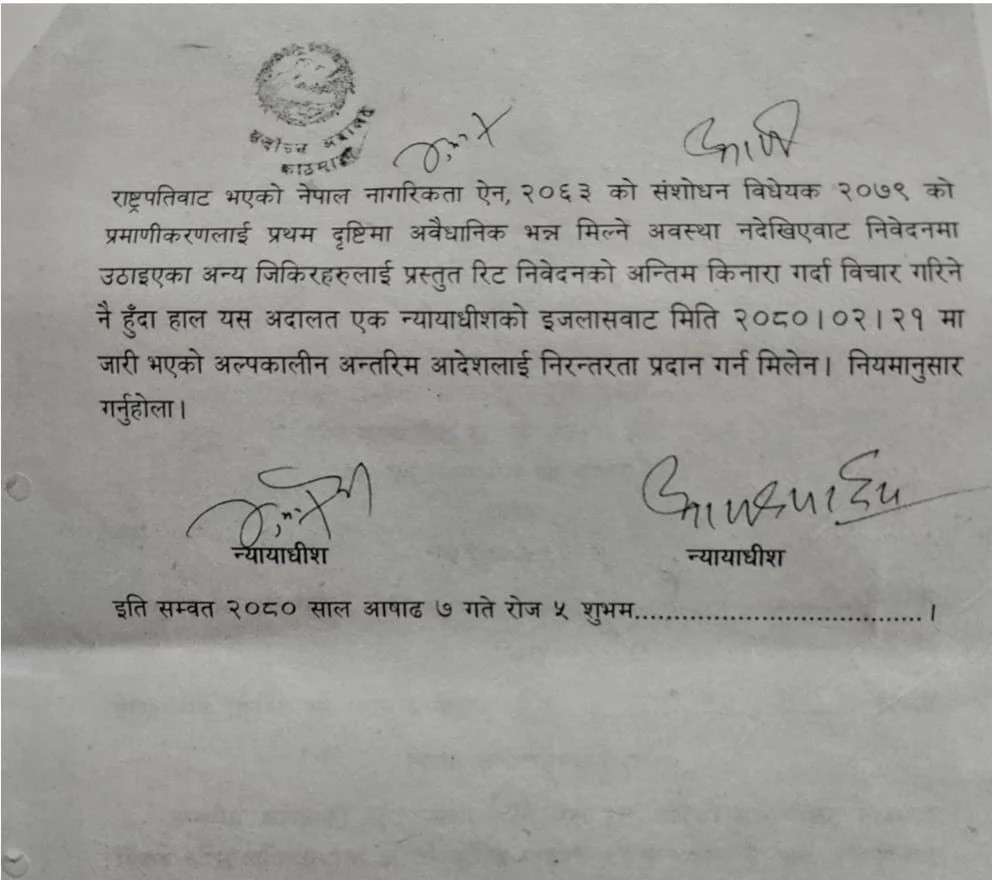 सर्वोच्च अदालत
काठमाडौं
राष्ट्रपतिवाट भएको नेपाल नागरिकता ऐन, २०६३ को संशोधन विधेयक २०७९ को
प्रमाणीकरणलाई प्रथम दृष्टिमा अवैधानिक भन्न मिल्ने अवस्था नदेखिएवाट निवेदनमा
उठाइएका अन्य जिकिरहरुलाई प्रस्तुत रिट निवेदनको अन्तिम किनारा गर्दा विचार गरिने
नै हुँदा हाल यस अदालत एक न्यायाधीशको इजलासवाट मिति २०८०।०२।२१ मा
जारी भएको अल्पकालीन अन्तरिम आदेशलाई निरन्तरता प्रदान गर्न मिलेन। नियमानुसार
गर्नुहोला।
न्यायाधीश न्यायाधीश
इति सम्वत २०८० साल आषाढ ७ गते रोज ५ शुभम......................................।